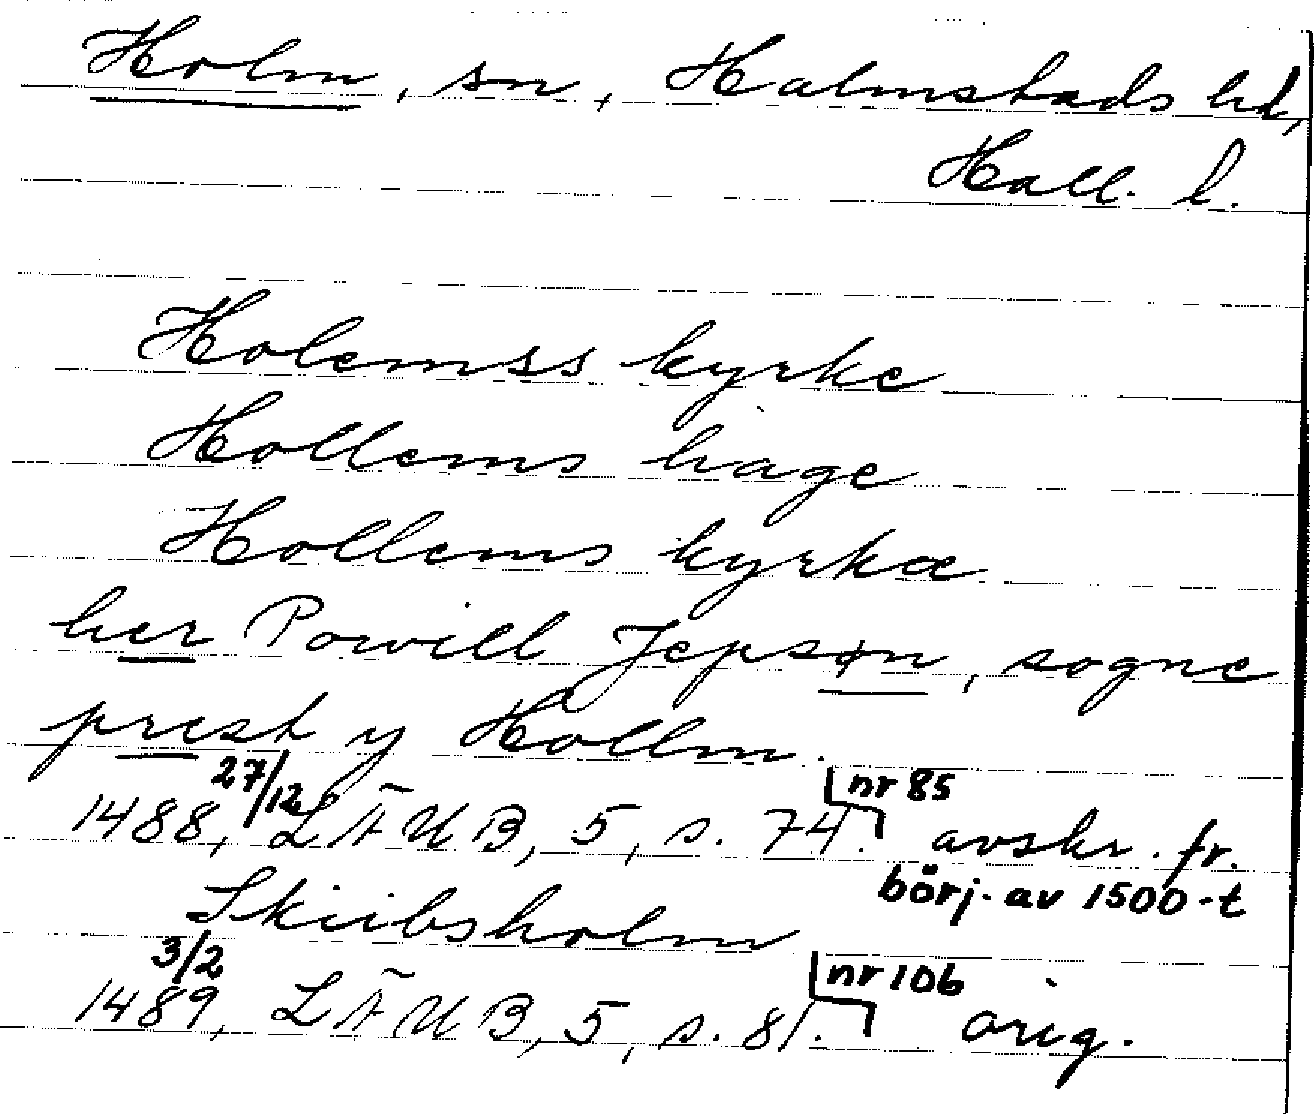 Holm, sn, Halmstads hd,
Hall. l.
Holemss kyrke
Hollems hage
Hollems kyrkæ
her Powill Jepsøn, sogne
prest y Hollm.
1488 27/12, LÄUB, 5, s. 74. nr 85 avskr. fr.
börj. av 1500-t
Skiibsholm
1489 3/2, LÄUB, 5, s. 81. nr 106 orig.